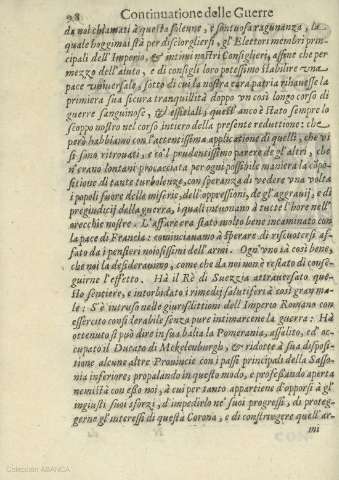 98 Continuatione delle Guerre
da noi chiamati à questa solenne, e sontuosa ragunanza, la
quale hoggimai stà per disciorgliersi, gl'Elettori membri prin-
cipali dell'Imperio, & intimi nostri Consiglieri, affine che per
mezzo dell'aiuto, e di consigli loro potessimo stabilire vna
pace vniuersale, sotto di cui la nostra cara patria rihauesse la
primiera sua sicura tranquillità doppo vn così longo corso di
guerre sanguinose, & essitiali; quest'anco è stato sempre lo
scoppo nostro nel corso intiero della presente reduttione: che
però habbiamo con l'attentissima applicatione di quelli, che vi
si sono ritrouati, e co'l prudentissimo parere de gl'altri, che
n'erano lontani procacciata per ogni possibile maniera la cõpo-
sitione di tante turbolenze, con speranza di vedere vna volta
i popoli fuore delle miserie, dell'oppressioni, de gl'aggrauij, e di
pregiudicij della guerra, i quali intuonano à tutte l'hore nell'
orecchie nostre. L'affare era stato molto bene incaminato con
la pace di Francia: cominciauamo à sperare di riscuotersi af-
fato da i pensieri noiosissimi dell'armi. Ogn'vno sà così bene,
che noi la desiderauamo, come che da noi non è restato di conse-
guirne l'effetto. Hà il Rè di Suezzia attrauersato que-
sto sentiero, e intorbidato i rimedij salutiferi à così gran ma-
le: S'è intruso nelle giurisdittioni dell'Imperio Romano con
essercito considerabile senza pure intimarcene la guerra: Hà
ottenuto si può dire in sua balia la Pomerania, assalito, ed oc-
cupato il Ducato di Mekelenburgh, & ridotte à sua disposi-
tione alcune altre Prouincie con i passi principali della Sasso-
nia inferiore; propalando in questo modo, e professando aperta
nemistà con esso noi, à cui per tanto appartiene d'opporsi à gl'
ingiusti suoi sforzi, d'impedirlo ne' suoi progressi, di proteg-
gerne gl'interessi di questa Corona, e di constringere quell'ar-
mi
Colección ABANCA